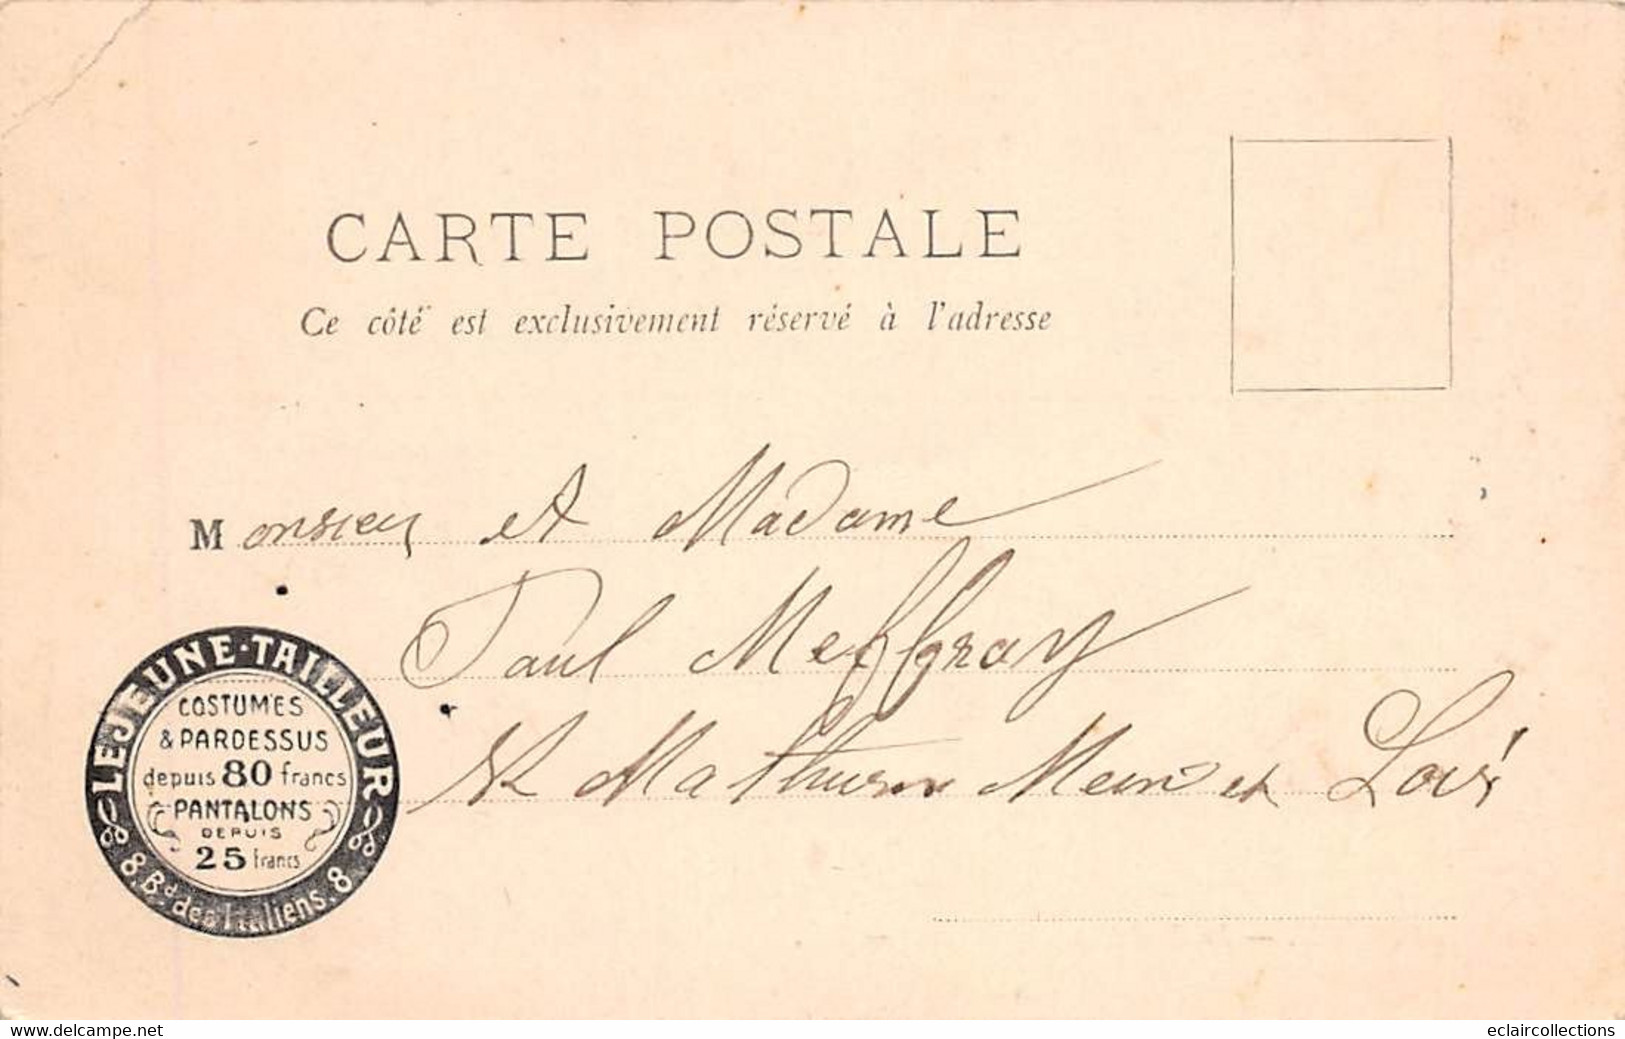 CARTE POSTALE
Ce côté est exclusivement réservé à l'adresse
Monsieur et Madame
Paul Meffray
St Mathurin Mein et Loir
LEJEUNE-TAILLEUR
COSTUMES
& PARDESSUS
depuis 80 francs
PANTALONS
DEPUIS
25 francs
8. Bd des Italiens. 8
www.delcampe.net
eclaircollections